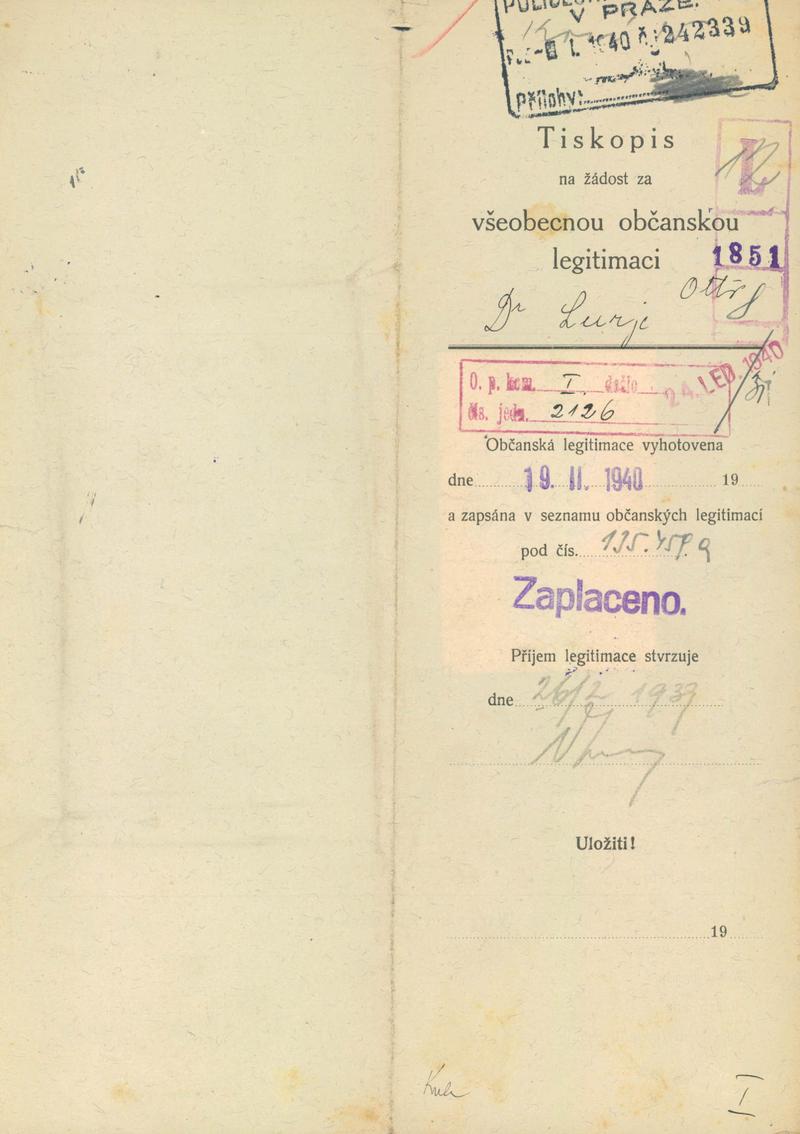 V PRAZE.
1940 Č. 242339
Přílohy:
Tiskopis
na žádost za
všeobecnou občanskou
legitimaci
1851
Dr Lurje
24. LED. 1940
O. p. kom. I. došlo
čís. jedn. 2126
Občanská legitimace vyhotovena
dne 19. II. 1940 19
a zapsána v seznamu občanských legitimací
pod čís.
Zaplaceno.
Příjem legitimace stvrzuje
dne 26/2 1939
Uložiti!
19
I